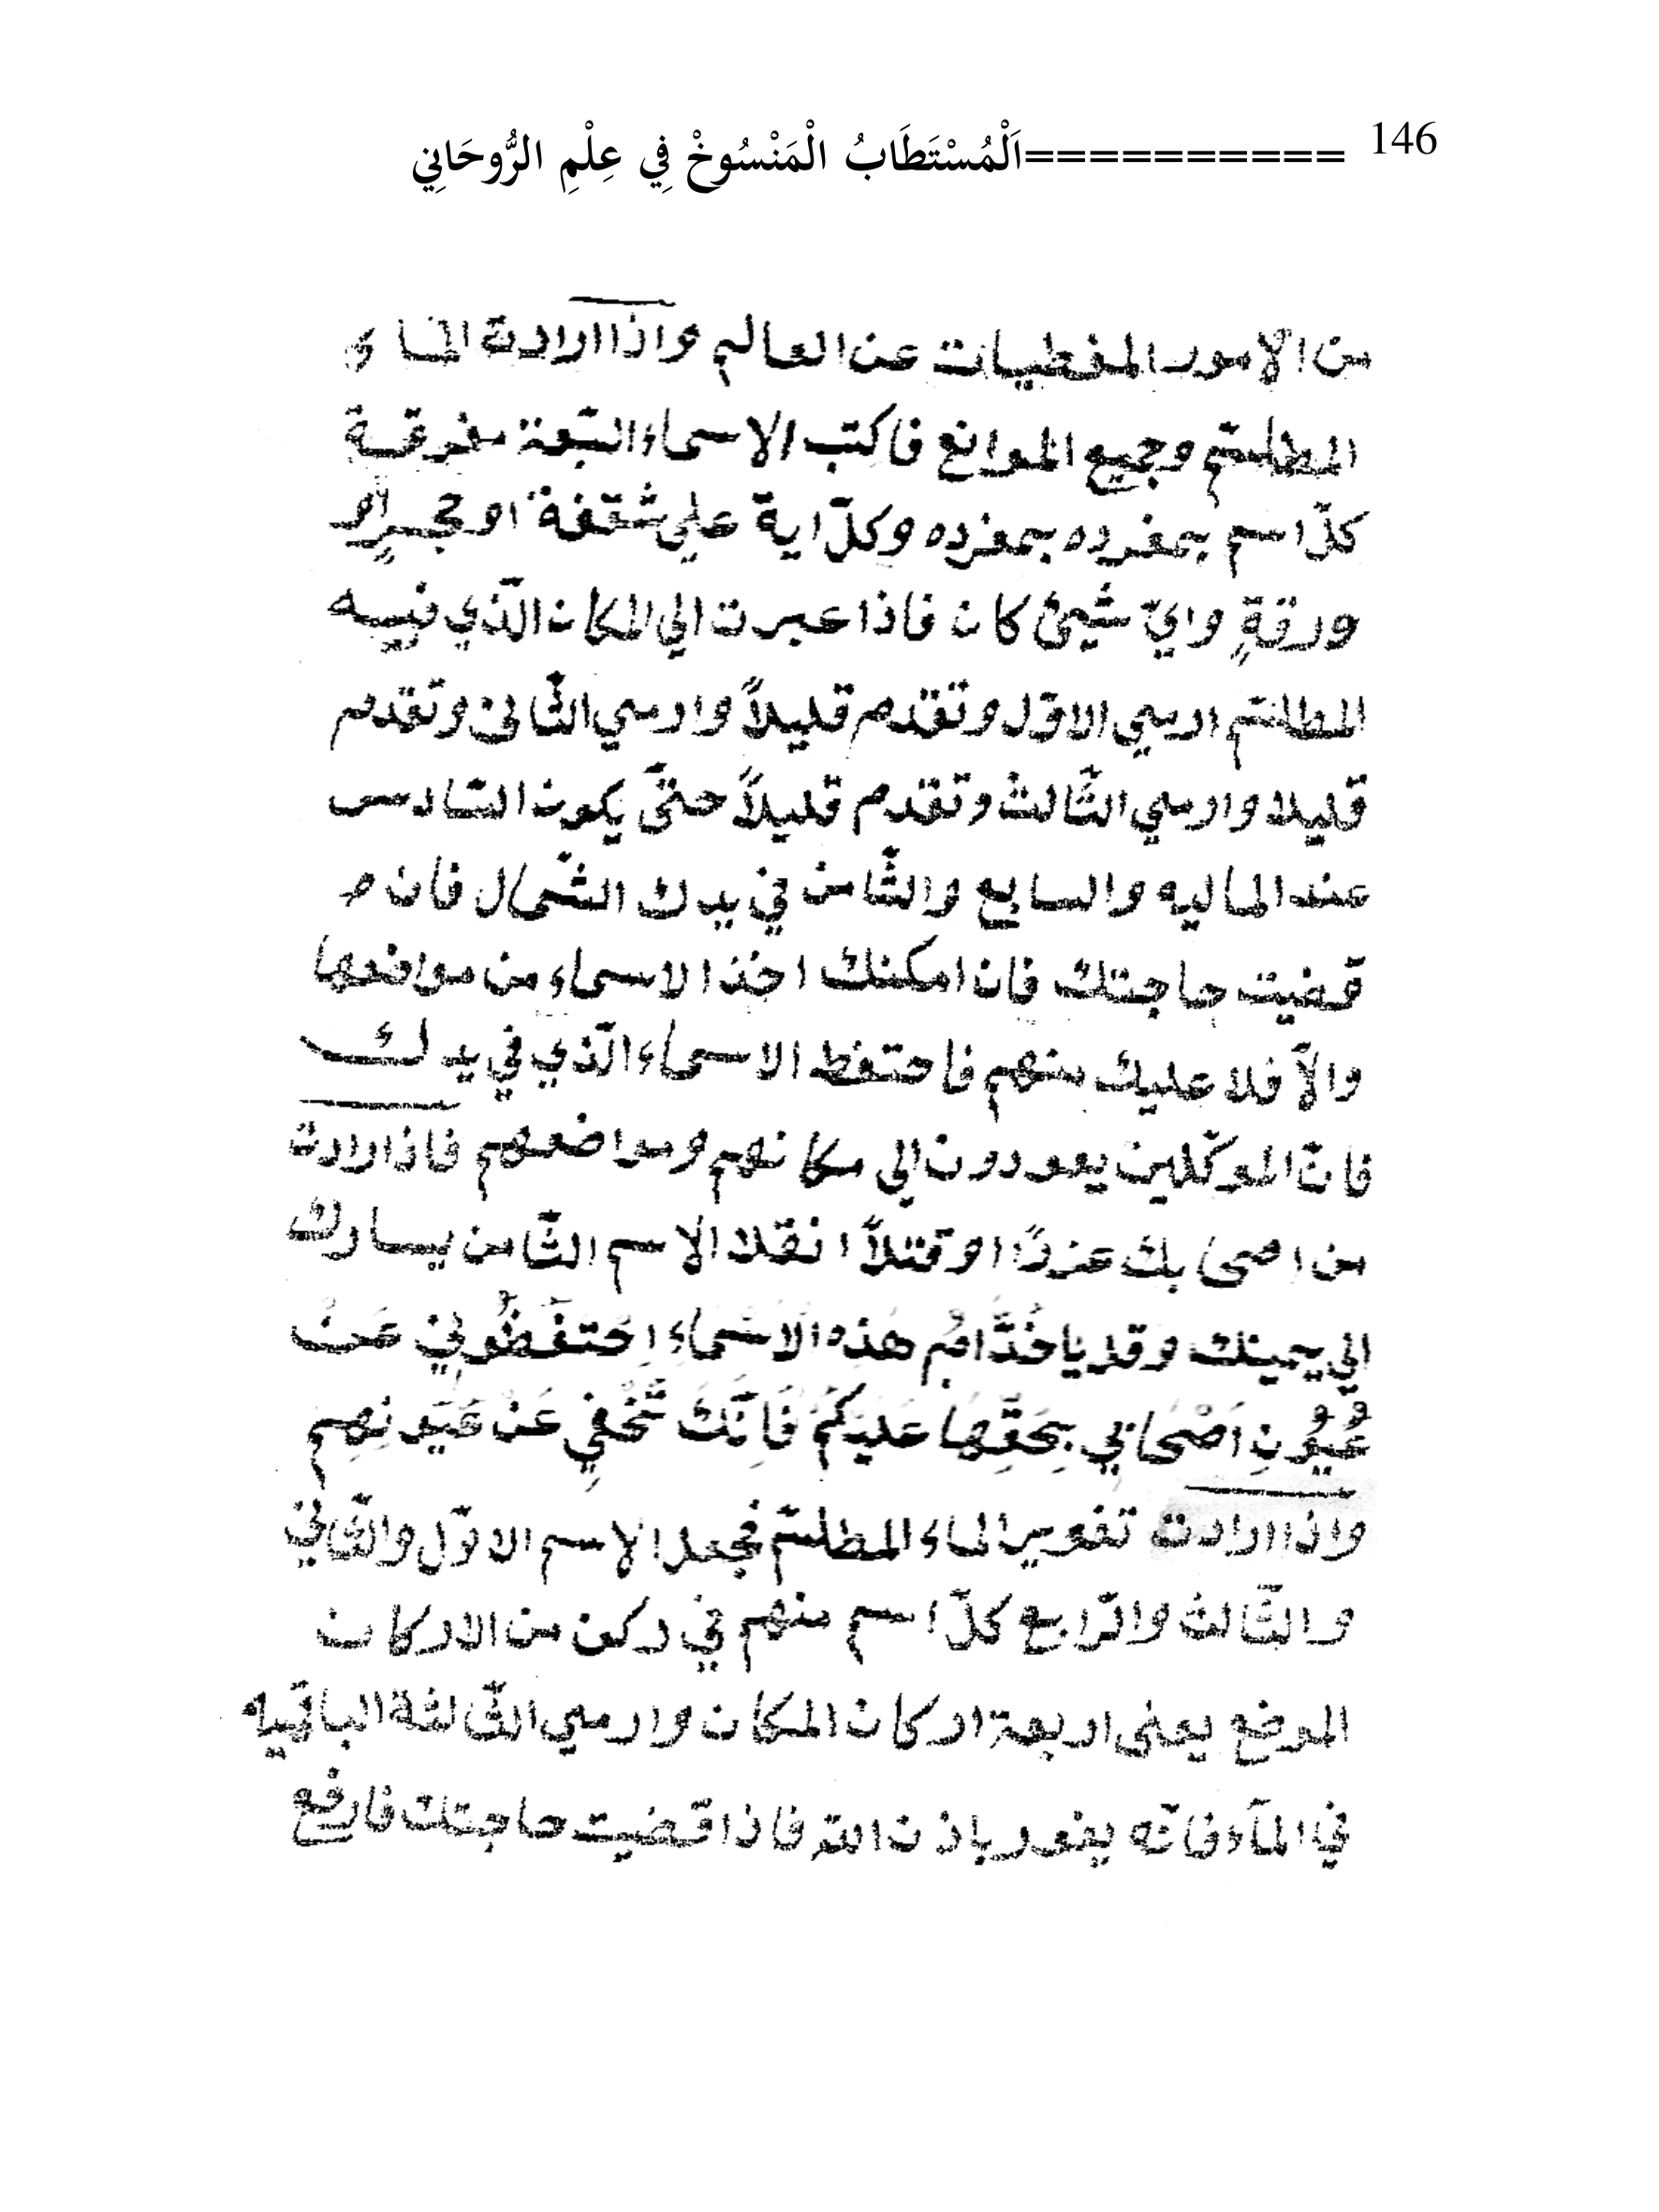 146 ==========اَلْمُسْتَطَابُ الْمَنْسُوخْ فِي عِلْمِ الرُّوحَانِي
من الامور المغطيات عن العالم واذا ارادت الماء
المطلسّم وجميع الموانع فاكتب الاسماء السّبعة مفرقة
كلّ اسم بمفرده بمفرده وكلّ اية على شقفة او حجرٍ او
ورقةٍ وايّ شيئ كان فاذا عبرت الي المكان الّذي فيه
المطلسّم ارمي الاوّل وتقدم قليلاً وارمي الثّاني وتقدم
قليلا وارمي الثّالث وتقدم قليلاً حتىّ يكون السّادس
عند الماليه والسابع والثّامن في يدك الشّمال فان
قضيت حاجتك فان امكنك اخذ الاسماء من مواضعها
والاّ فلا عليك منهم فاحتفظ الاسماء الّذي في يدك
فانّ الموكّلين يعودون الي مكانهم ومواضعهم فاذا ارادت
من اصحابك عزرًا او قتلاً انقلا الاسم الثّامن يسارك
الي يمينك وقل يا خُدَّامُ هَذِه الاَسْمَاءِ اِحْتفَظُولِيْ عَنْ
عُيُوُنِ اَصْحَابِي بِحَقِّهَا عَلَيْكُمْ فَاِنَّكَ تَخْفِي عَنْ عَيَونِهِم
واذا ارادت تغوير الماء المطلسّم فجعل الاسم الاوّل والثّاني
والثّالث والرّابع كلّ اسم منهم في ركن من الاركان
الموضع يعنى اربعة اركان المكان وارمي الثّالثة الباقيه
في المآء فانّه يغور باذن اللّه فاذا قضيت حاجتك فارفع